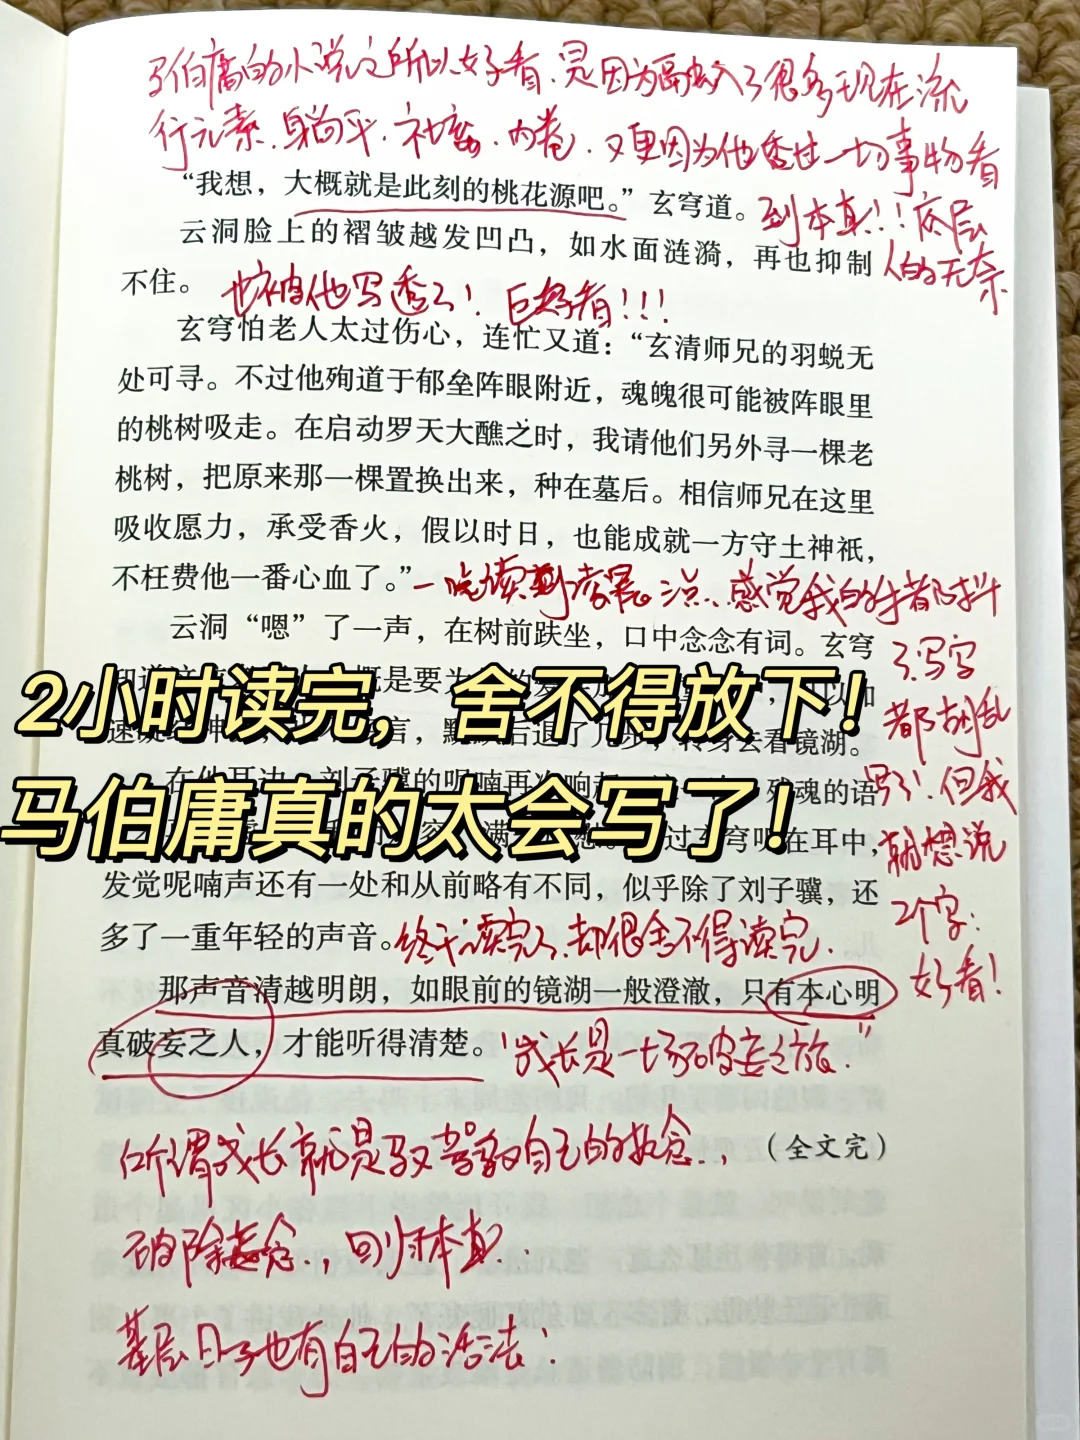 马伯庸的小说之所以好看，是因为融入了很多现在流
行元素，躺平、社畜、内卷，又更因为他透过一切事物看
到本真！！底层
人的无奈
也被他写透了！巨好看！！！
“我想，大概就是此刻的桃花源吧。”玄穹道。
云洞脸上的褶皱越发凹凸，如水面涟漪，再也抑制
不住。
玄穹怕老人太过伤心，连忙又道：“玄清师兄的羽蜕无
处可寻。不过他殉道于郁垒阵眼附近，魂魄很可能被阵眼里
的桃树吸走。在启动罗天大醮之时，我请他们另外寻一棵老
桃树，把原来那一棵置换出来，种在墓后。相信师兄在这里
吸收愿力，承受香火，假以时日，也能成就一方守土神祇，
不枉费他一番心血了。”
一晚读到凌晨 感觉我的手都抖
了，写字
都胡乱
写了，但我
就想说
2个字：
好看！
云洞“嗯”了一声，在树前趺坐，口中念念有词。玄穹
2小时读完，舍不得放下！
转身去看镜湖。
残魂的语
马伯庸真的太会写了！
过玄穹听在耳中，
发觉呢喃声还有一处和从前略有不同，似乎除了刘子骥，还
多了一重年轻的声音。
终于读完了，却很舍不得读完．
那声音清越明朗，如眼前的镜湖一般澄澈，只有本心明
真破妄之人，才能听得清楚。
“成长是一场破妄之旅．”
（全文完）
所谓成长就是放弃自己的执念，
破除妄念，回归本真．
基层日子也有自己的活法：